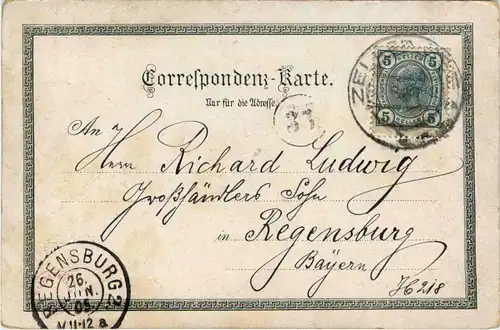 5 5
ZELL
5 5
Correspondenz-Karte.
Nur für die Adresse.
37
An
Herrn Richard Ludwig
Großhändlers Sohn
in Regensburg
Bayern
H218
REGENSBURG 2
26.
JUN.
05
V.II-12 a